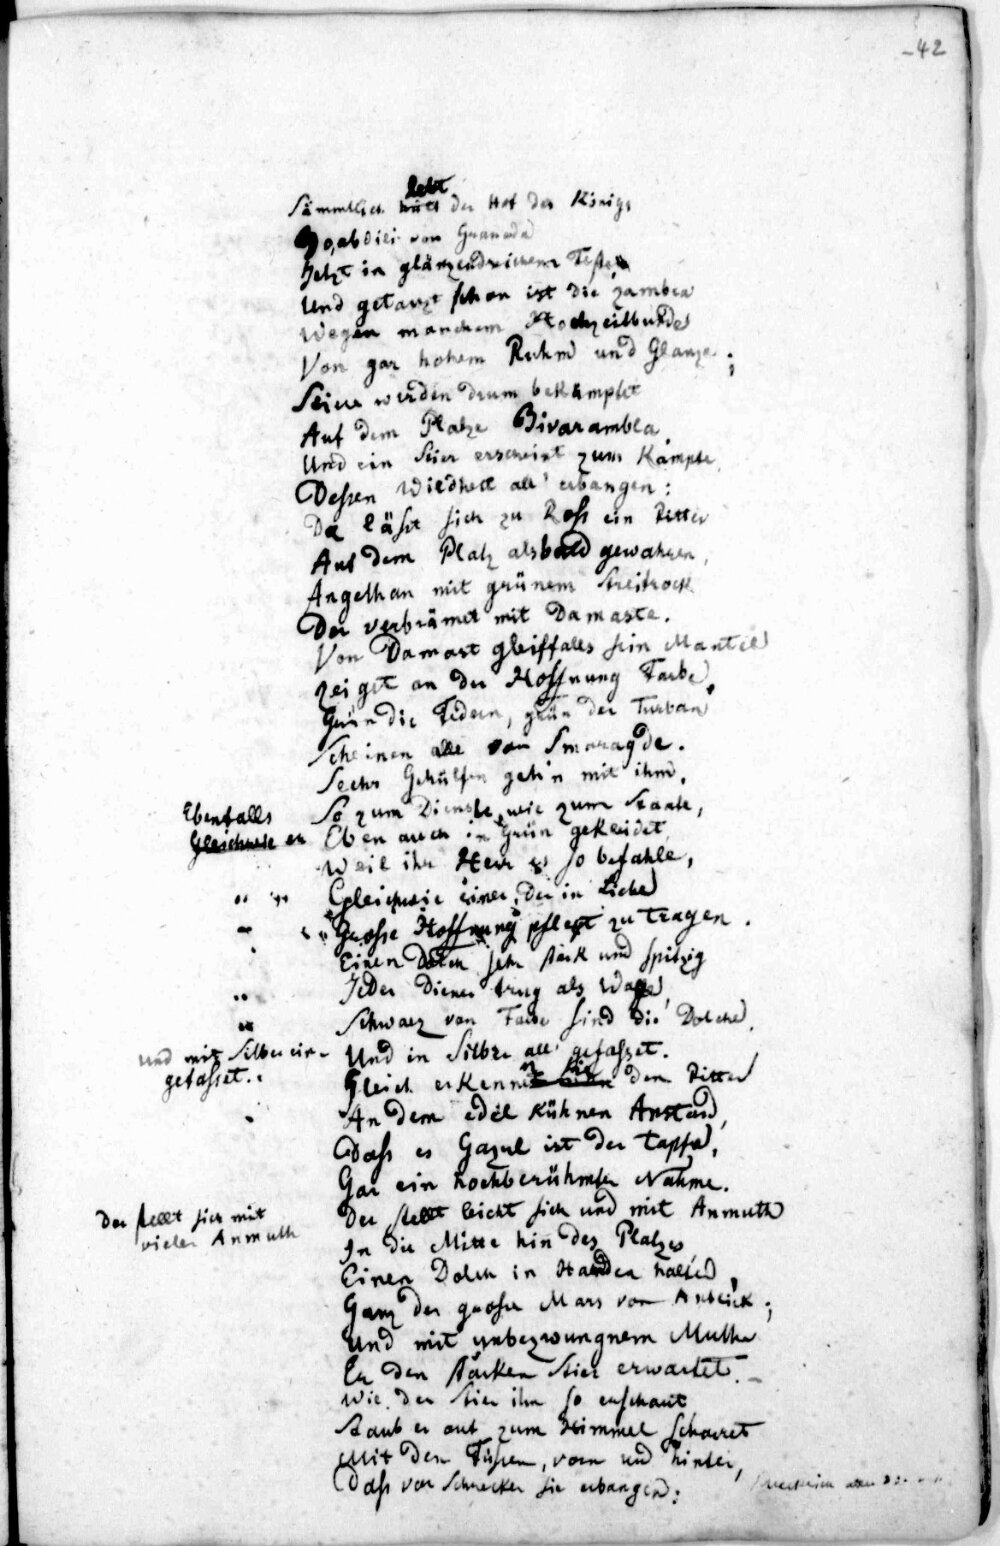 -42
lebt
Sämmtlich hält der Hof des Königs
Boabdili von Granada
Jetzt in glänzendreichem Feste,
Und getanzt schon ist die Zambra
Wegen manchem Hochzeitbunde
Von gar hohem Ruhm und Glanze;
Stiere werden drum bekämpfet
Auf dem Platze Bivarambla.
Und ein Stier erscheint zum Kampfe,
Dessen Wildheit all' erbangen:
Da läßt sich zu Roß ein Ritter
Auf dem Platz alsbald gewahren,
Angethan mit grünem Streitrock
Der verbrämet mit Damaste.
Von Damast gleiffalls sein Mantel
Zeiget an der Hoffnung Farbe,
Grün die Federn, grün der Turban
Scheinen alle von Smaragde.
Sechs Gehülfen geh'n mit ihm,
So zum Dienste, wie zum Staate,
Ebenfalls
Gleichwie er
Eben auch in Grün gekleidet,
Weil ihr Herr es so befahle,
Gleichwie einer, der in Liebe
Grosse Hoffnung pflegt zu tragen.
Einen Dolch sehr stark und spitzig
Jeder Diener trug als Waffe,
Schwarz von Farbe sind die Dolche,
und mit Silber ein-
gefasset.
Und in Silber all' gefasset.
Gleich erkennt den Ritter
An dem edel kühnen Anstand,
Daß es Gazul ist der tapfre,
Gar ein hochberühmter Nahme.
Der stellt sich mit
vieler Anmuth
Der stellt leicht sich und mit Anmuth
In die Mitte hin des Platzes,
Einen Dolch in Handen haltend,
Ganz der grosse Mars von Anblick;
Und mit unbezwungnem Muthe
Er den starken Stier erwartet.
Wie der Stier ihn so erschaut
Staub er auf zum Himmel scharret
Mit den Füssen, vorn und hinten,
Daß vor Schrecken sie erbangen: